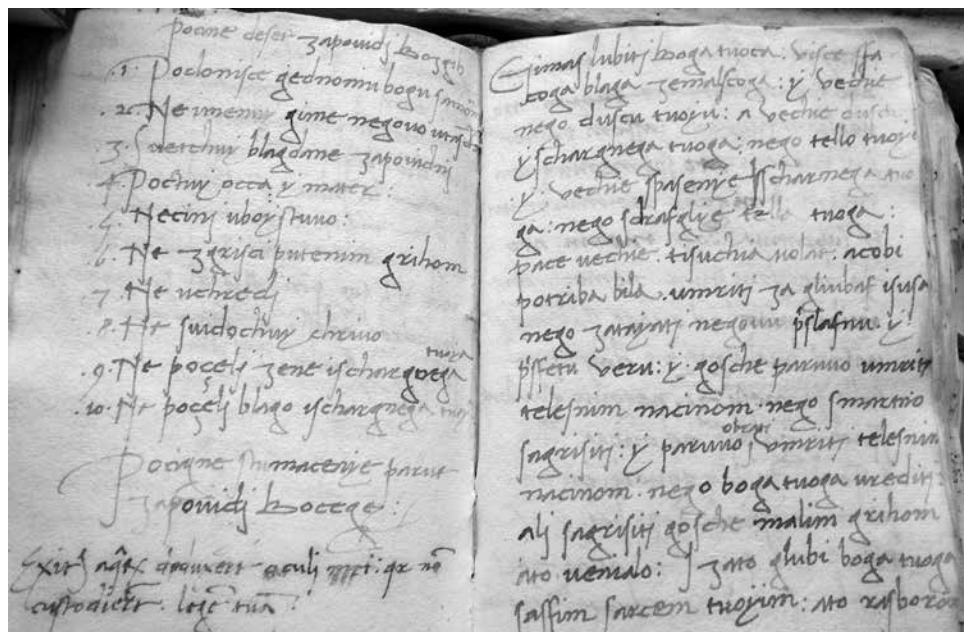 pocine deset zapouidj bozgih
.1. Poclonisce gednomu bogu samom
.2. Ne vmemy gime negouo vtasche
.3. Suetchuy blagdane zapouidni
.4. Poctuy occa y mater:
.5. Necinj vboystuuo:
.6. Ne zgrisci putenim grihom
.7. Ne uchredj
.8. Ne suidochuy chriuo
.9. Ne poçelj zene ischargnega tuoga
.10. Ne poçelj blago ischargnega tuo
Pocigne stumacenye paruе
zapouidj bocege:
Exitus oculi mei: qr no
custodiert legē tuā
Gimas lubitj boga tuoga: visce ffa
coga blaga zemalscoga: y vechie
nego duscu tuoyu: a vechie duscu
yschargnega tuoga: nego tello tuoye
y vechie spasenye yschargnega tuo
ga: nego scrafglye tello tuoga:
pace vechie. tisuchia uolat. acobi
potriba bila. vmriti za gliubaf isusa
nego zatayatj negouu pslafnu y
psfetu veru: y. gosche paruuo vmriti
telesnim nacinom. nego smartno
sagrisiti: y paruuo obrati vmriti telesnim
nacinom. nego boga tuoga vrediti:
ali sagrisiti gosche malim grihom
ato venialo: zato glubi boga tuoga
saffim sarcem tuoyim: ato rasborom